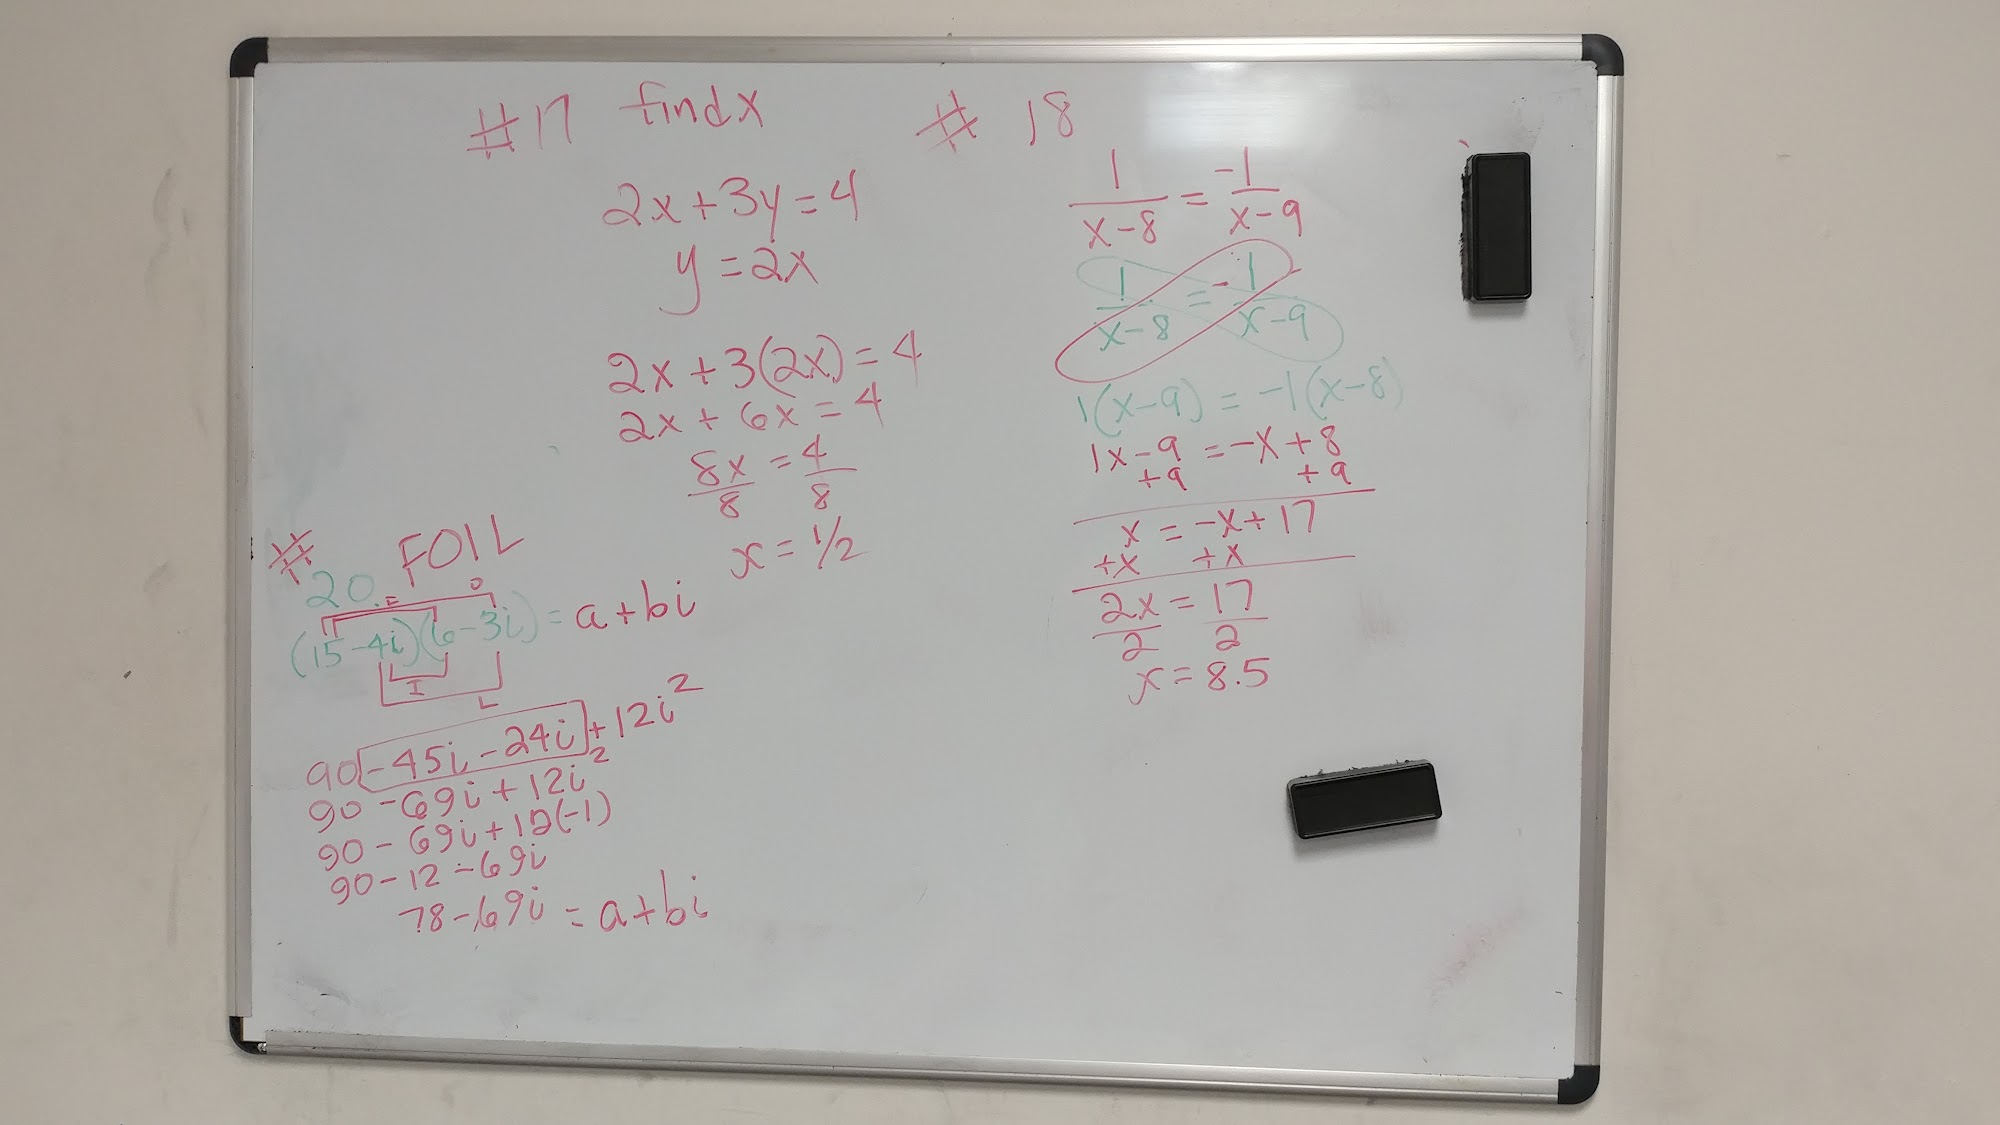 #17 find x
2x+3y=4
y=2x
2x+3(2x)=4
2x+6x=4
8x=4
8 8
x=1/2
# 18
1 = -1
x-8 x-9
1 = -1
x-8 x-9
1(x-9)=-1(x-8)
1x-9=-x+8
+9 +9
x=-x+17
+x +x
2x=17
2 2
x=8.5
#
20. FOIL
F O
(15-4i)(6-3i)=a+bi
I
L
90-45i-24i+12i²
90-69i+12i²
90-69i+12(-1)
90-12-69i
78-69i=a+bi